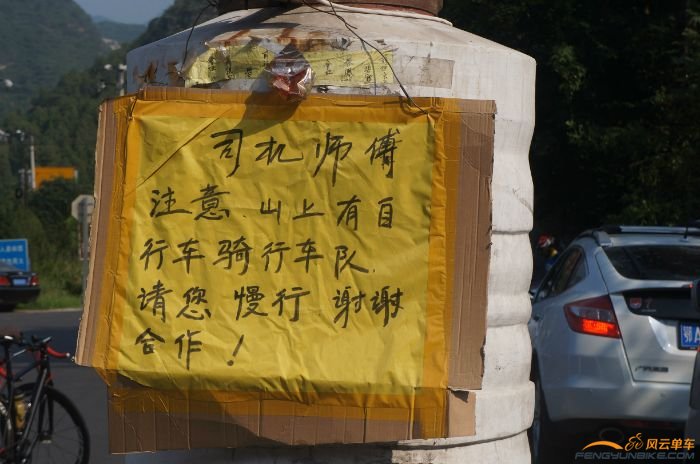 司机师傅
注意.山上有自
行车骑行车队.
请您慢行 谢谢
合作!
风云单车
FENGYUNBIKE.COM